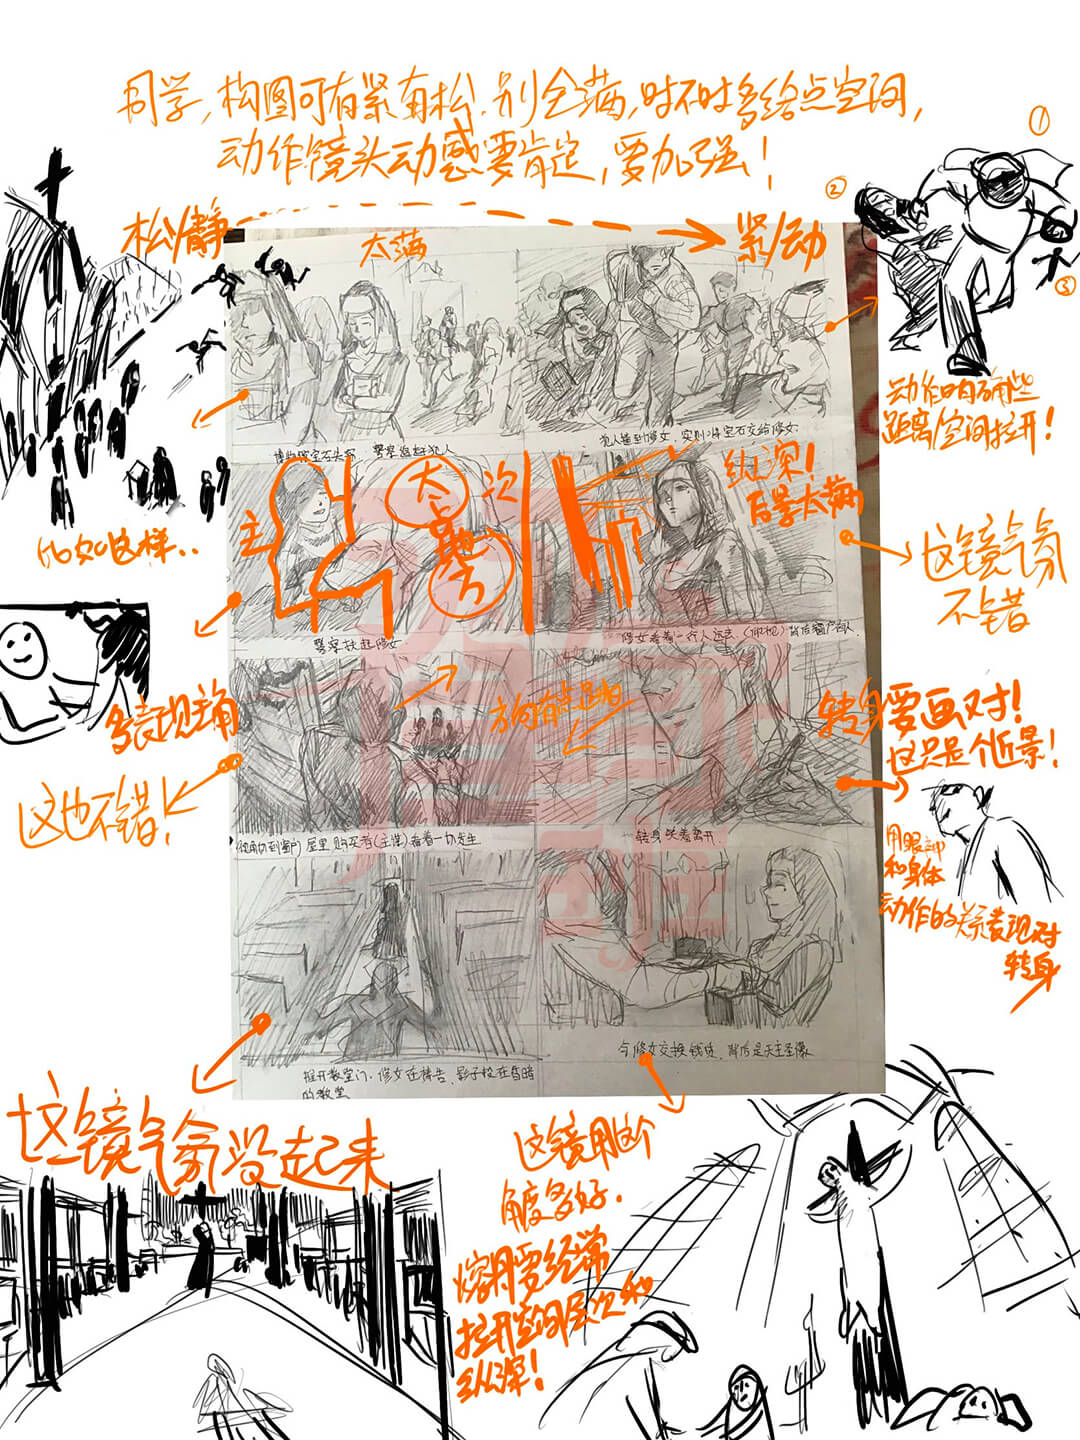 同学,构图可有紧有松.别全满,时不时多给点空间,
动作镜头动感要肯定,要加强!
松/静
太满
紧/动
①
②
③
动作明确些
距离/空间拉开!
博物馆宝石失窃 警察追赶犯人
犯人撞到修女,实则将宝石交给修女
比如这样..
主
太
占地方
次
纵深!
后景太满
这镜气氛
不错
警察扶起修女
修女看着一行人远去
多表现主角
方向有点
转身要画对!
这只是个近景!
这也不错!
屋里 购买者(主谋)看着一切发生
转身笑着离开
用眼神
和身体
动作的关系表现对
转身
推开教堂门.修女在祷告.影子投在昏暗
的教堂
与修女交换钱货,背后是天主圣像
这镜气氛没起来
这镜用这个
角度多好.
熔月要经常
拉开空间层次和
纵深!